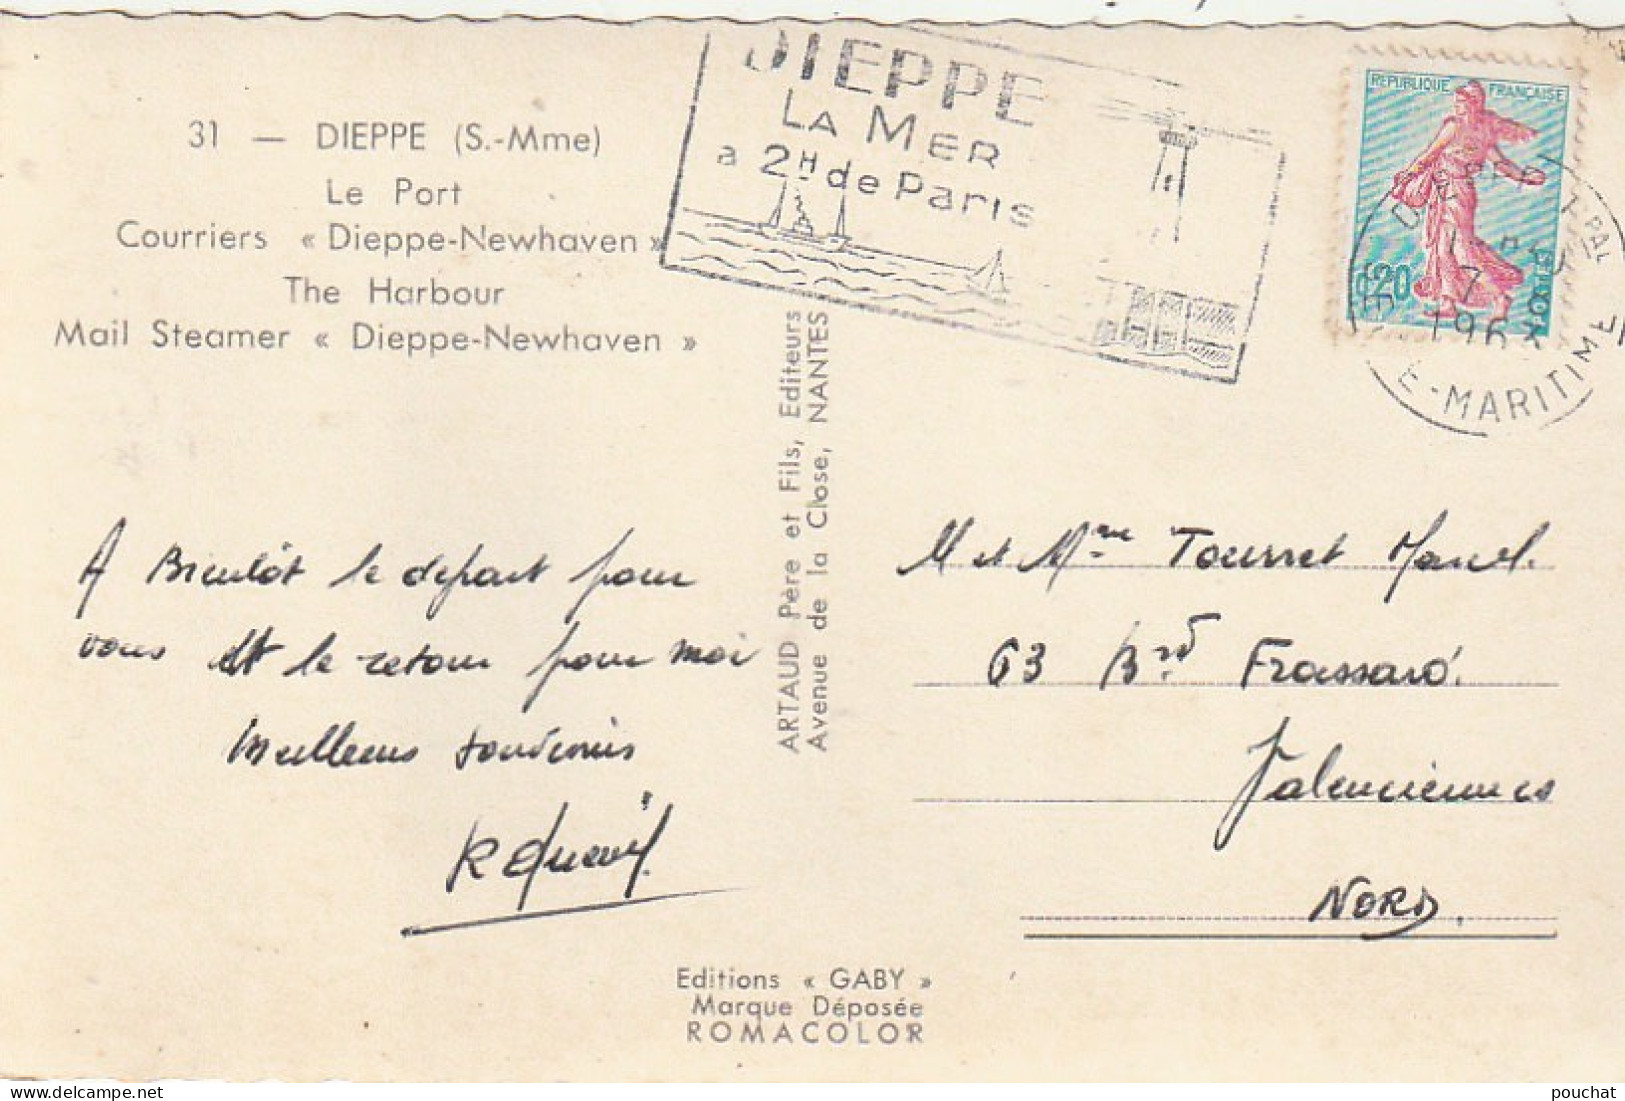 31 — DIEPPE (S.-Mme)
Le Port
Courriers « Dieppe-Newhaven »
The Harbour
Mail Steamer « Dieppe-Newhaven »
DIEPPE
LA MER
a 2H de Paris
REPUBLIQUE FRANÇAISE
0,20
POSTES
DIEPPE PPAL
7-8
196
E-MARITIME
ARTAUD Père et Fils, Editeurs
Avenue de la Close, NANTES
A Bientôt le depart pour
vous et le retour pour moi
Meilleurs souvenirs
M et Mme Tourret Marcel.
63 Brd Frassard.
Valenciennes
NORD.
Editions « GABY »
Marque Déposée
ROMACOLOR
pouchat